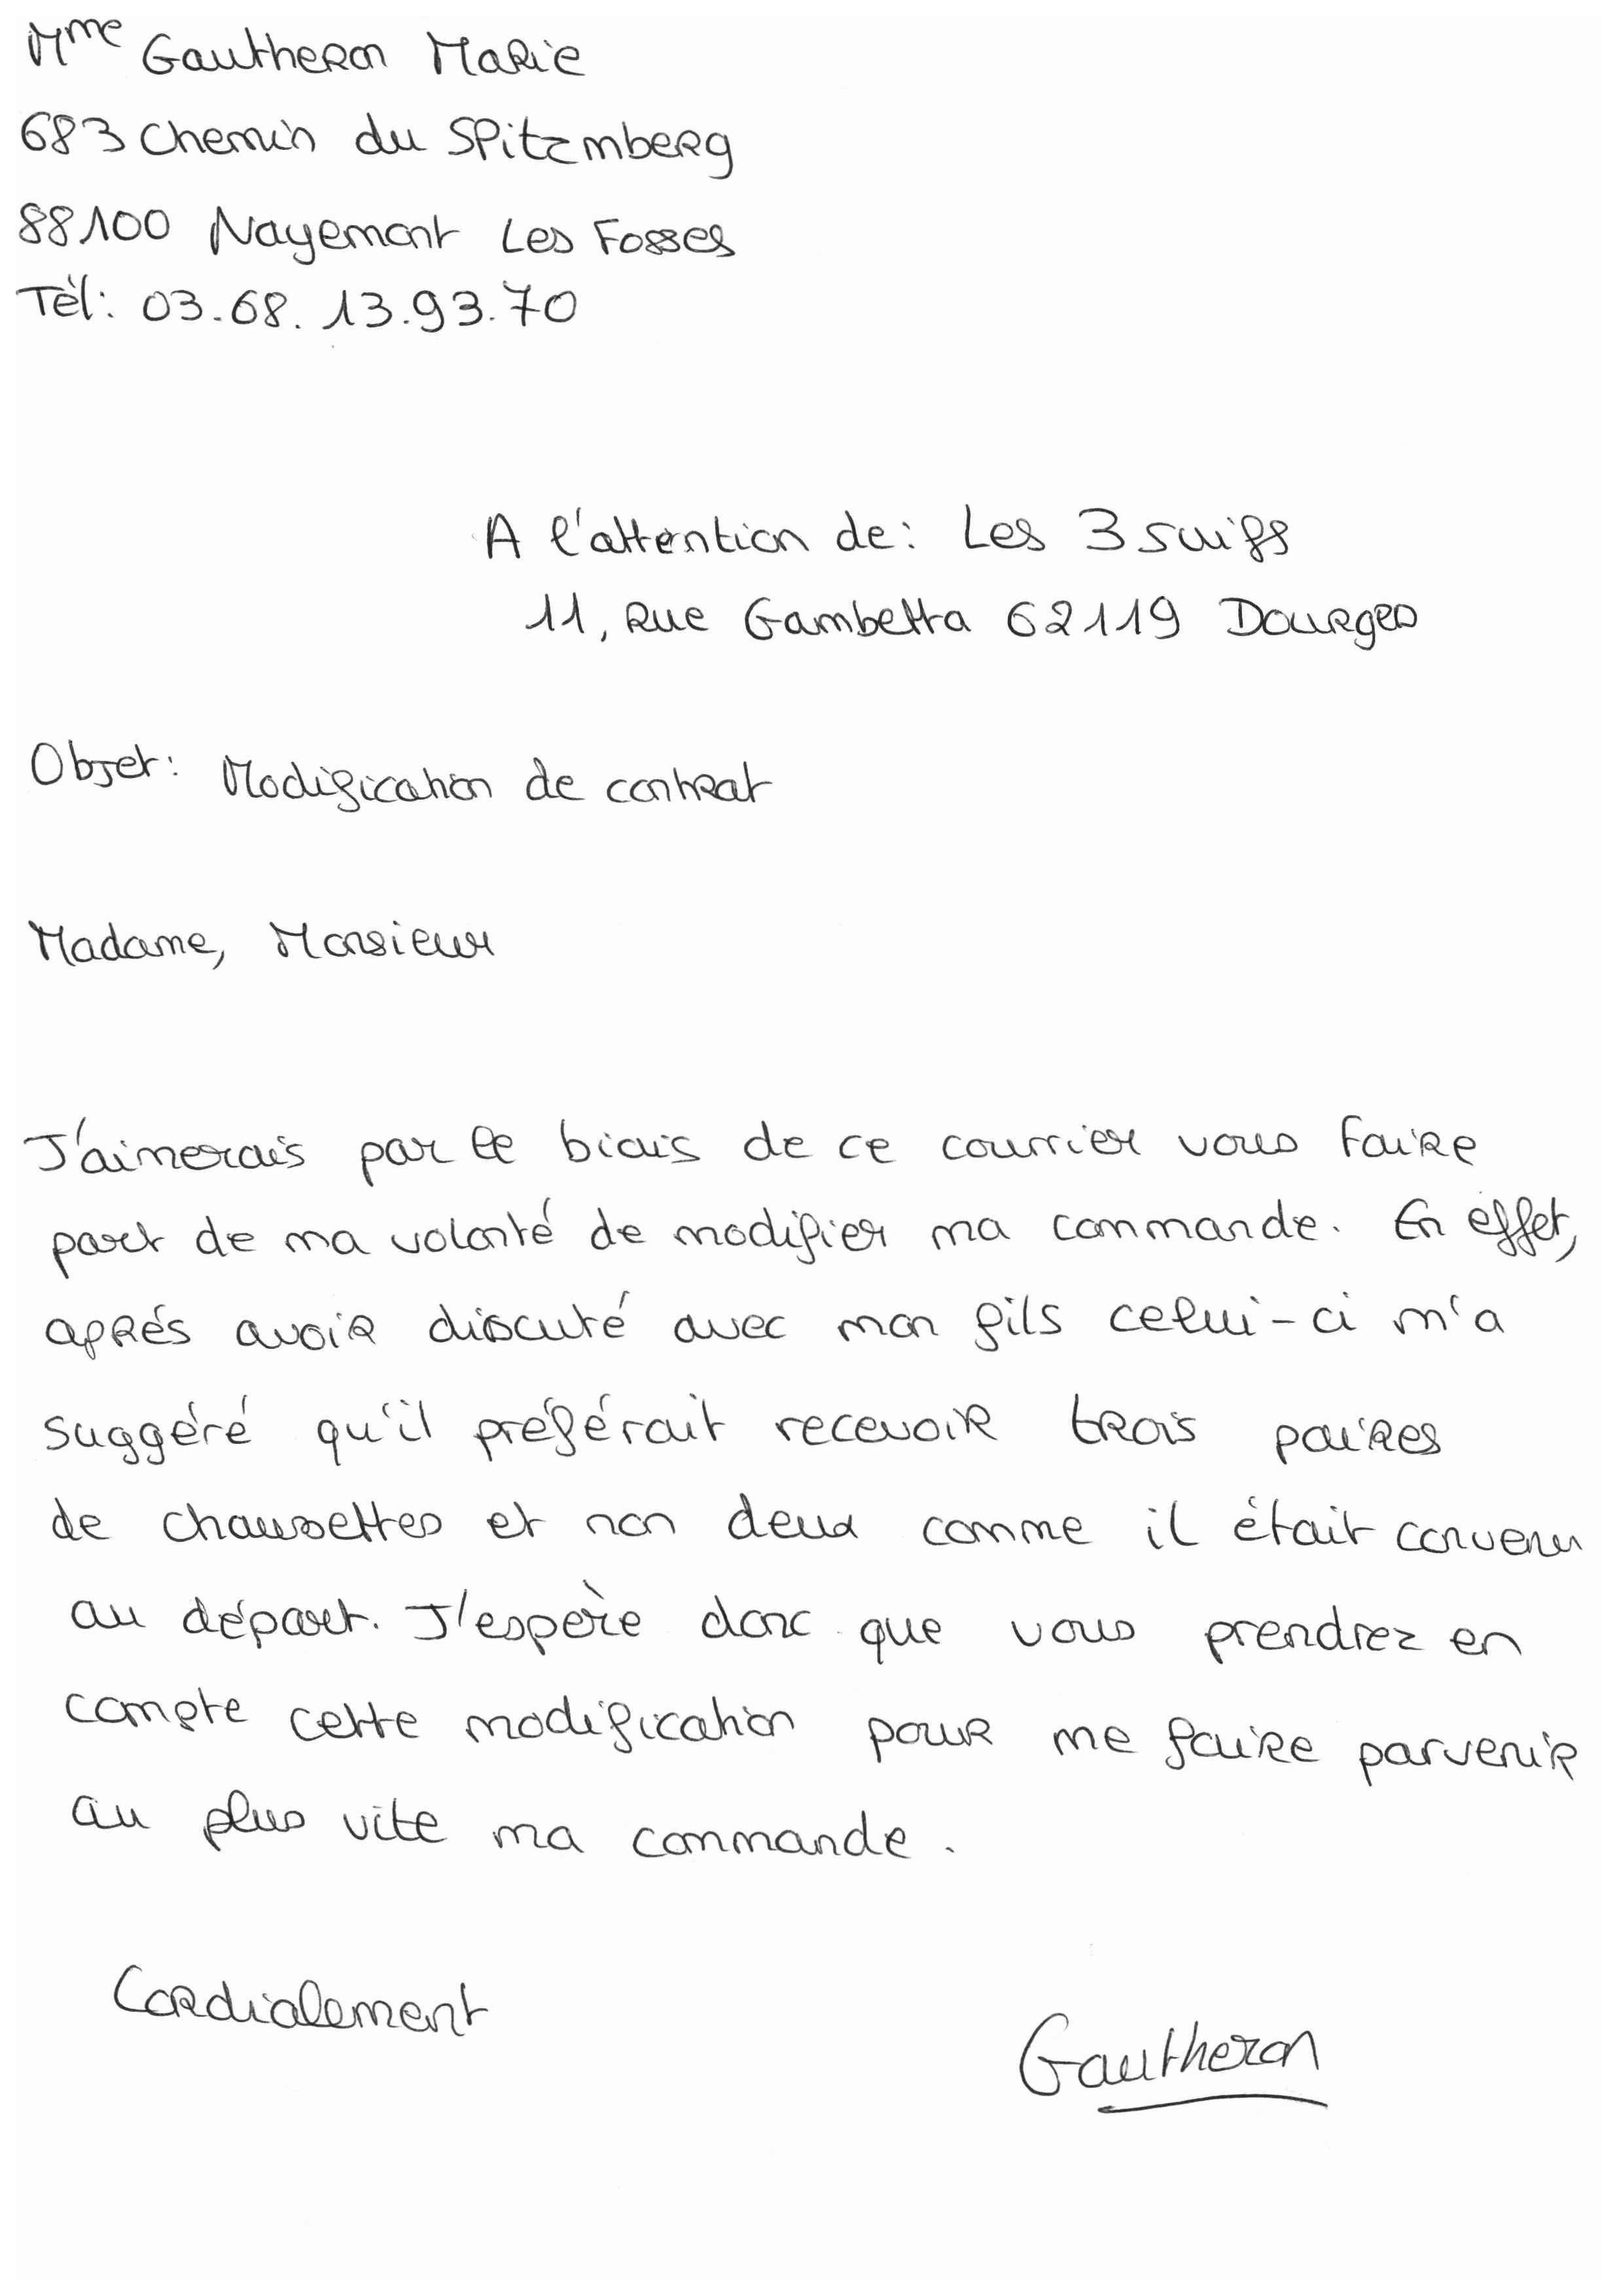 Mme Gautheron Marie
683 Chemin du Spitzmberg
88100 Nayemont Les Fosses
Tèl: 03.68.13.93.70
A l'attention de: Les 3 suiſs
11, Rue Gambetta 62119 Dourges
Objet: Modification de contrat
Madame, Monsieur
J'aimerais par le biais de ce courrier vous faire
part de ma volonté de modifier ma commande. En effet,
aprés avoir discuté avec mon fils celui-ci m'a
suggéré qu'il préférait recevoir trois paires
de chaussettes et non deux comme il était convenu
au départ. J'espère donc que vous prendrez en
compte cette modification pour me faire parvenir
au plus vite ma commande.
Cordialement
Gautheron